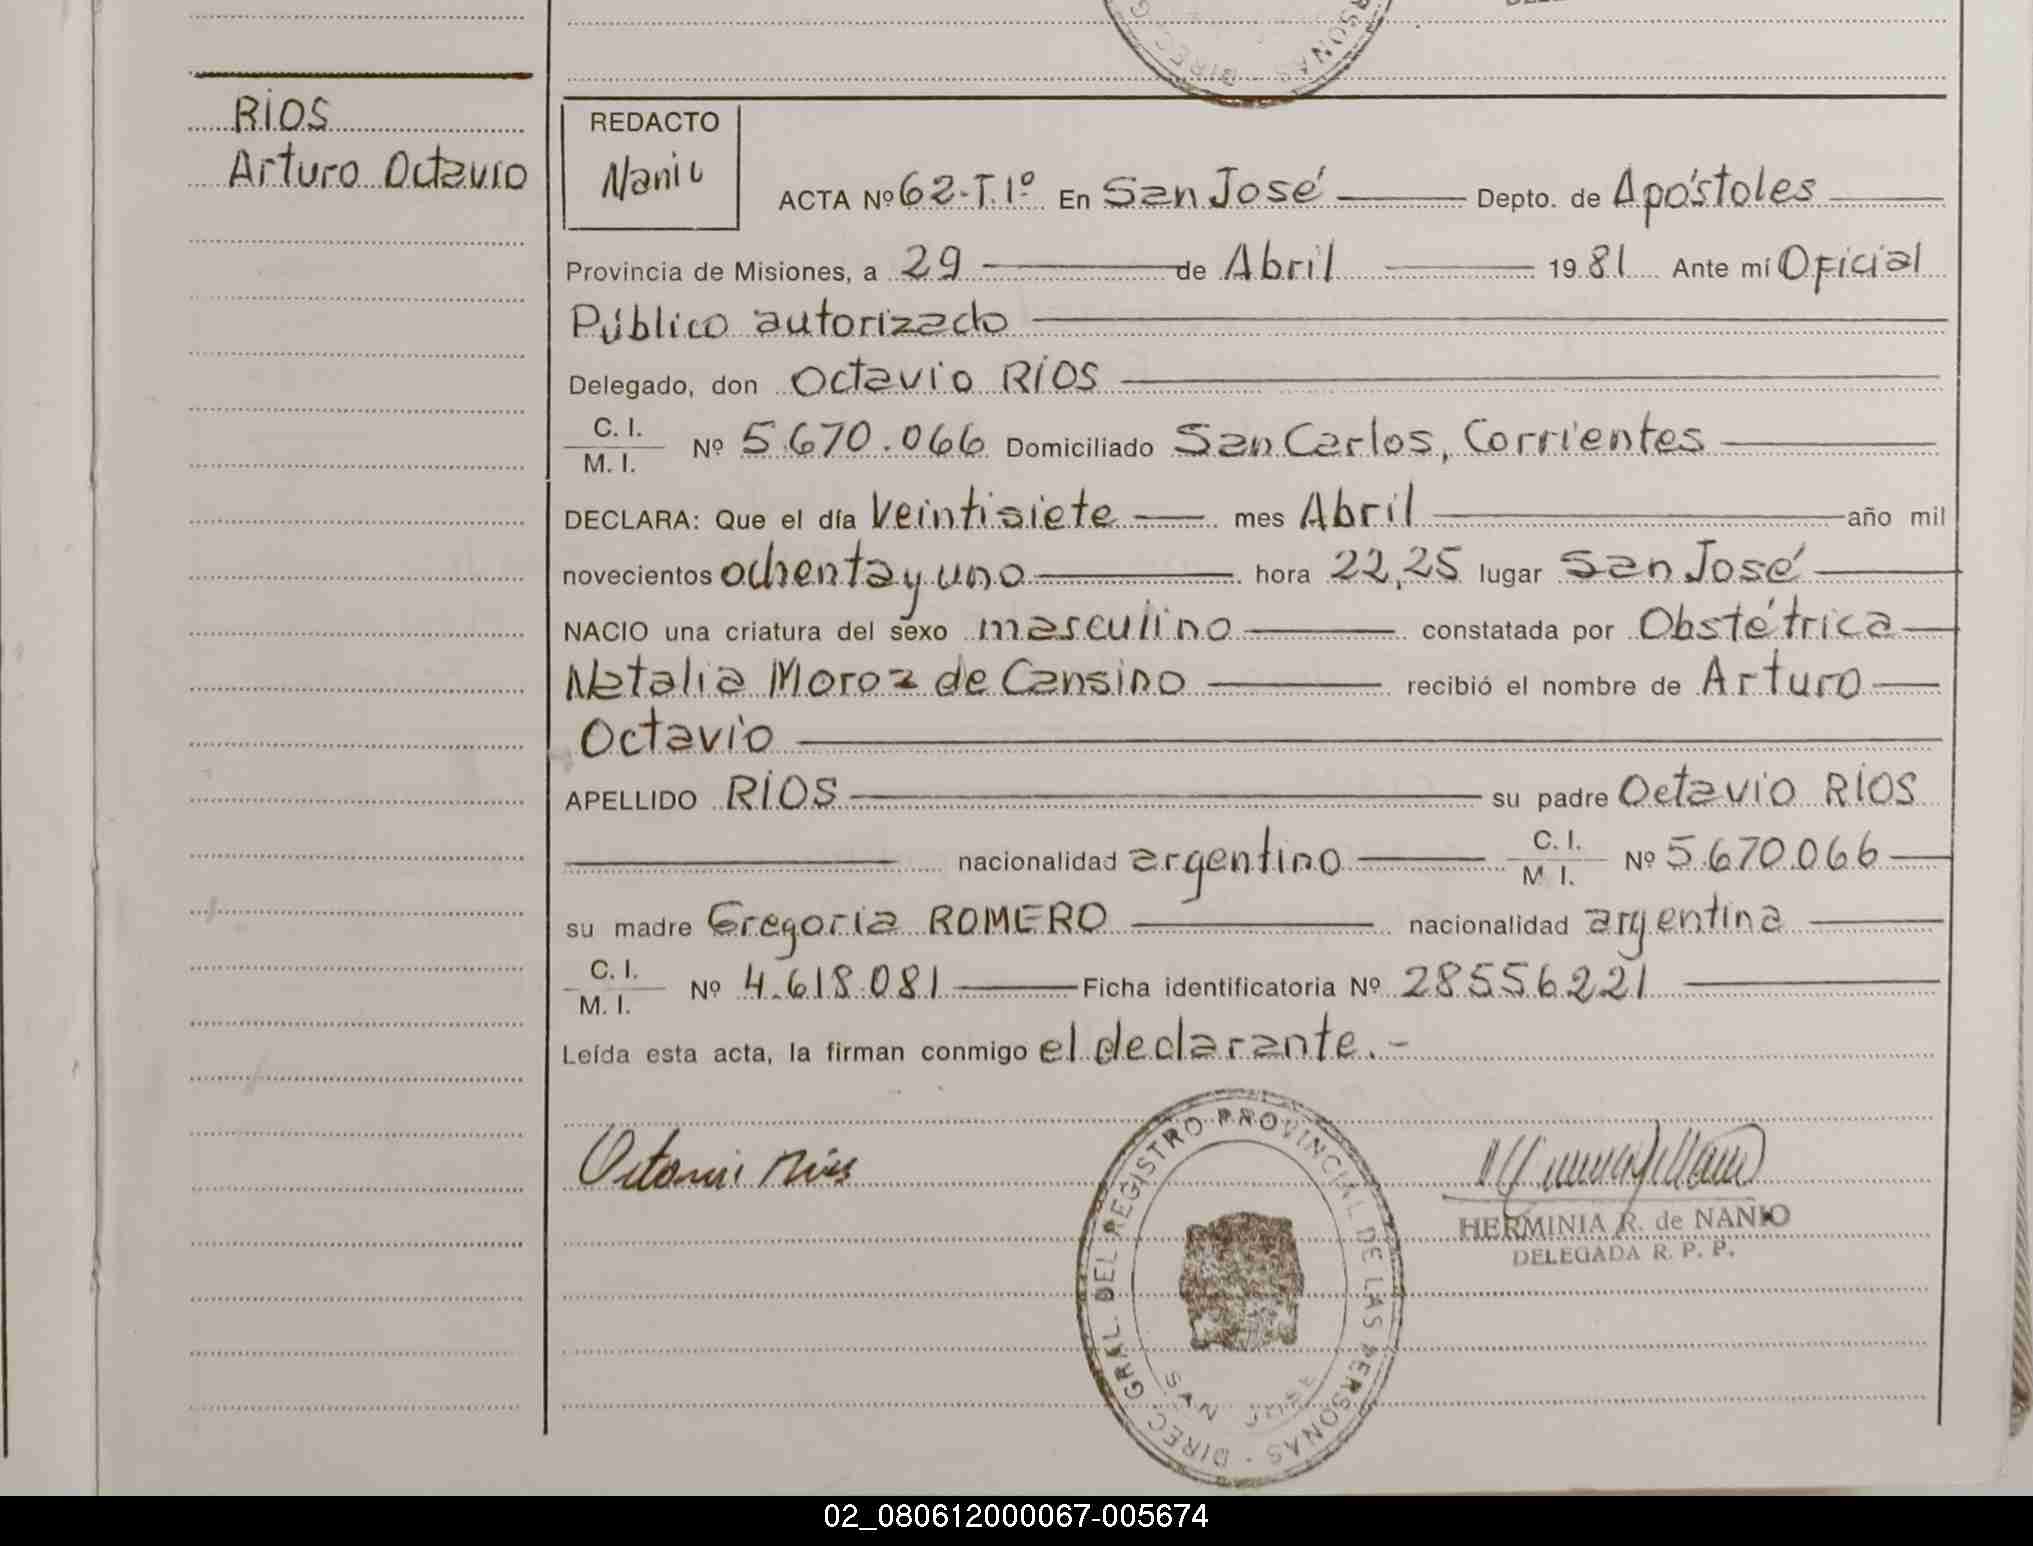 RÍOS
Arturo Octavio
REDACTO
Naniu
ACTA Nº 62-T.1º En San José Depto. de Apóstoles
Provincia de Misiones, a 29 de Abril 1981 Ante mí Oficial
Público autorizado
Delegado, don Octavio RÍOS
C. I.
M. I. Nº 5.670.066 Domiciliado San Carlos, Corrientes
DECLARA: Que el día veintisiete mes Abril año mil
novecientos ochenta y uno hora 22,25 lugar San José
NACIO una criatura del sexo masculino constatada por Obstétrica
Natalia Moroz de Cansino recibió el nombre de Arturo
Octavio
APELLIDO RÍOS su padre Octavio RÍOS
nacionalidad argentino C. I.
M. I. Nº 5.670.066
su madre Gregoria ROMERO nacionalidad argentina
C. I.
M. I. Nº 4.618.081 Ficha identificatoria Nº 28556221
Leída esta acta, la firman conmigo el declarante.-
Octavio Rios
DIREC. GRAL. DEL REGISTRO PROVINCIAL DE LAS PERSONAS
SAN JOSE
HERMINIA R. de NANIO
DELEGADA R. P. P.
02_080612000067-005674